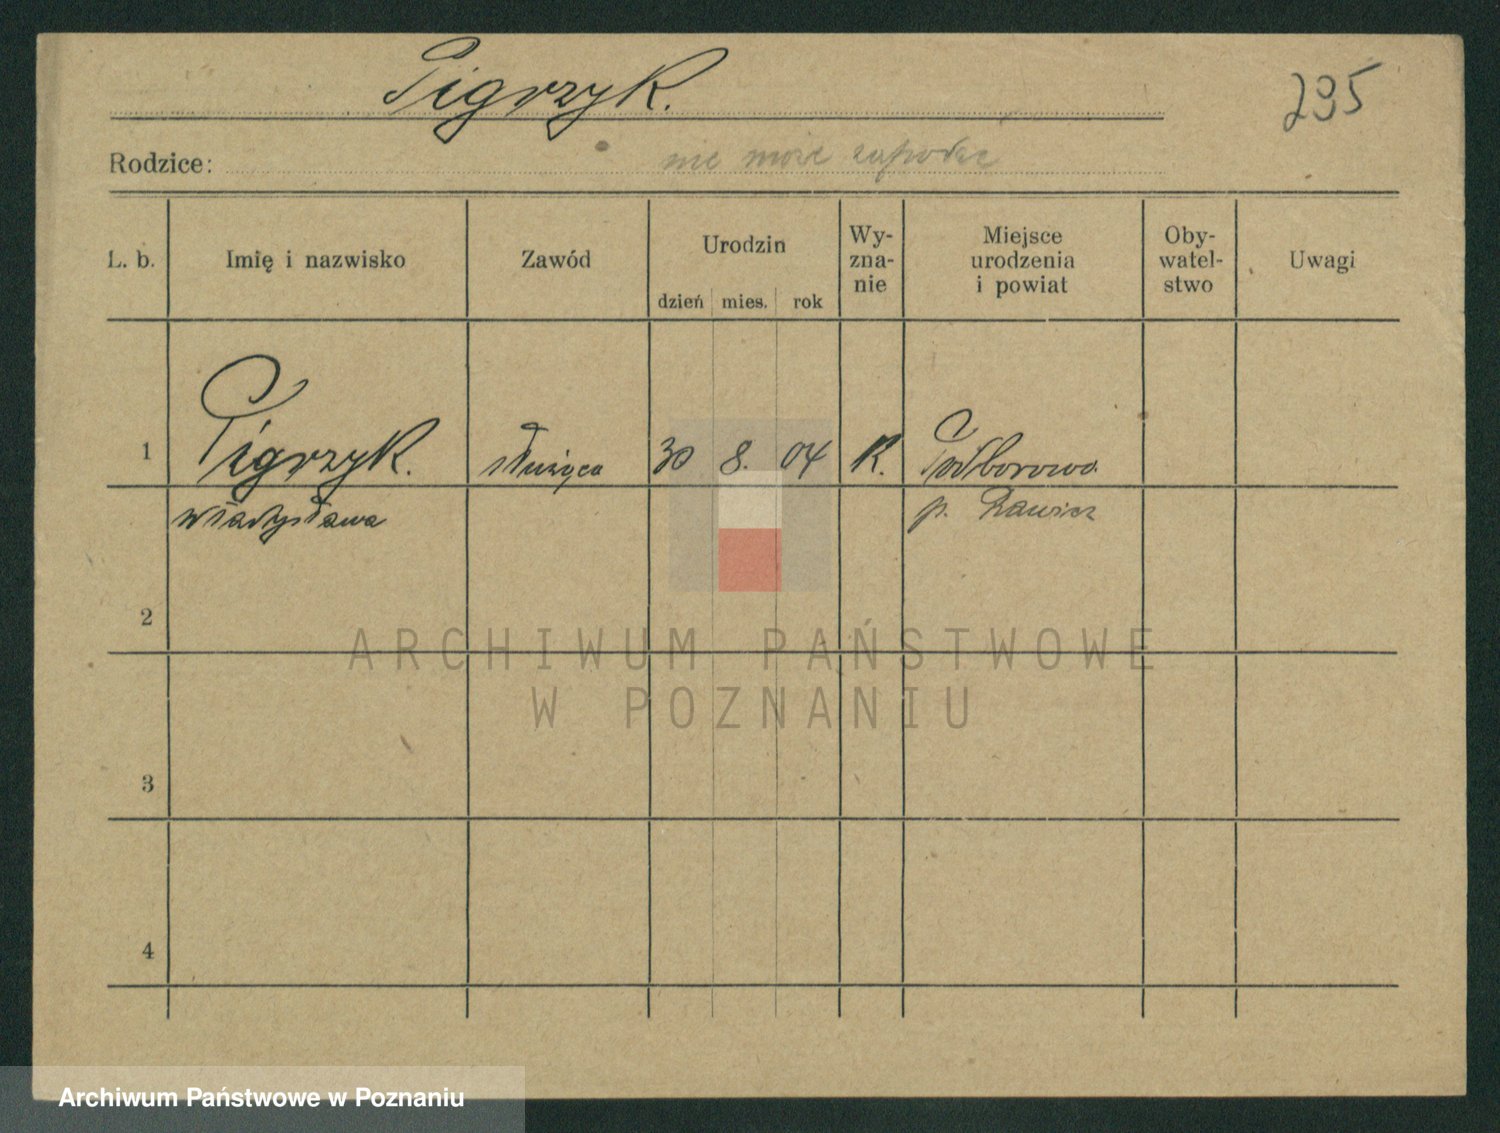 Pigrzyk.
295
Rodzice:
nie może
L. b. Imię i nazwisko Zawód Urodzin dzień mies. rok Wy-zna-nie Miejsce urodzenia i powiat Oby-watel-stwo Uwagi
1 Pigrzyk. służąca 30 8. 04 R. Podborowo
Władysława p. Rawicz
2
3
4
ARCHIWUM PAŃSTWOWE
W POZNANIU
Archiwum Państwowe w Poznaniu